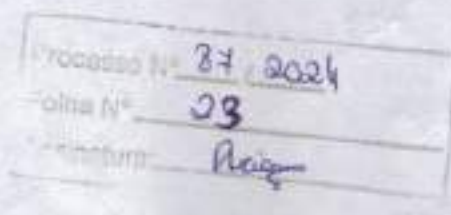 Processo Nº 87 / 2024
Folha Nº 23
Assinatura